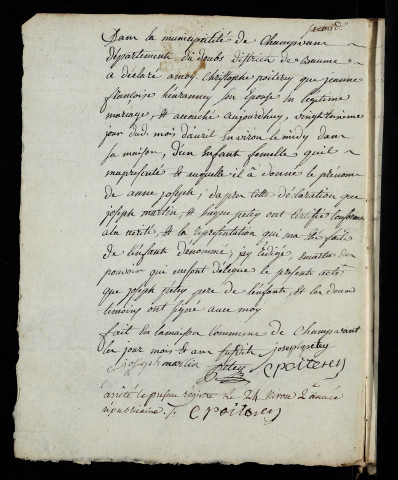 second.
Dans la municipalité de Champvans
département du doubs district de Baume
à déclaré à moy Christophe poiterey que jeanne
françoise son Epouse en legitime
mariage, est accouché aujourdhuy, vingt
jour dud. mois d'avril environ le midy dans
sa maison, d'un Enfant femelle quil
ma presenté et auquelle il à donné le prénom
de anne joseph; dapres cette déclaration que
joseph martin, et hugue petey ont certifié conforme
a la verité, et la représentation qui ma été faite
de l'enfant dénommé; j'ay rédigé, en vertu des
pouvoir qui me sont délégué le présente acte
que joseph petey pere de l'enfant, et les deux
témoins ont signé avec moy
fait en la maison commune de Champvant
les jour mois et an susdits joseph petey
joseph martin petey C poiterey
arrété le présent registre le 24 nivose 2e année
républicaine ./. C poiterey